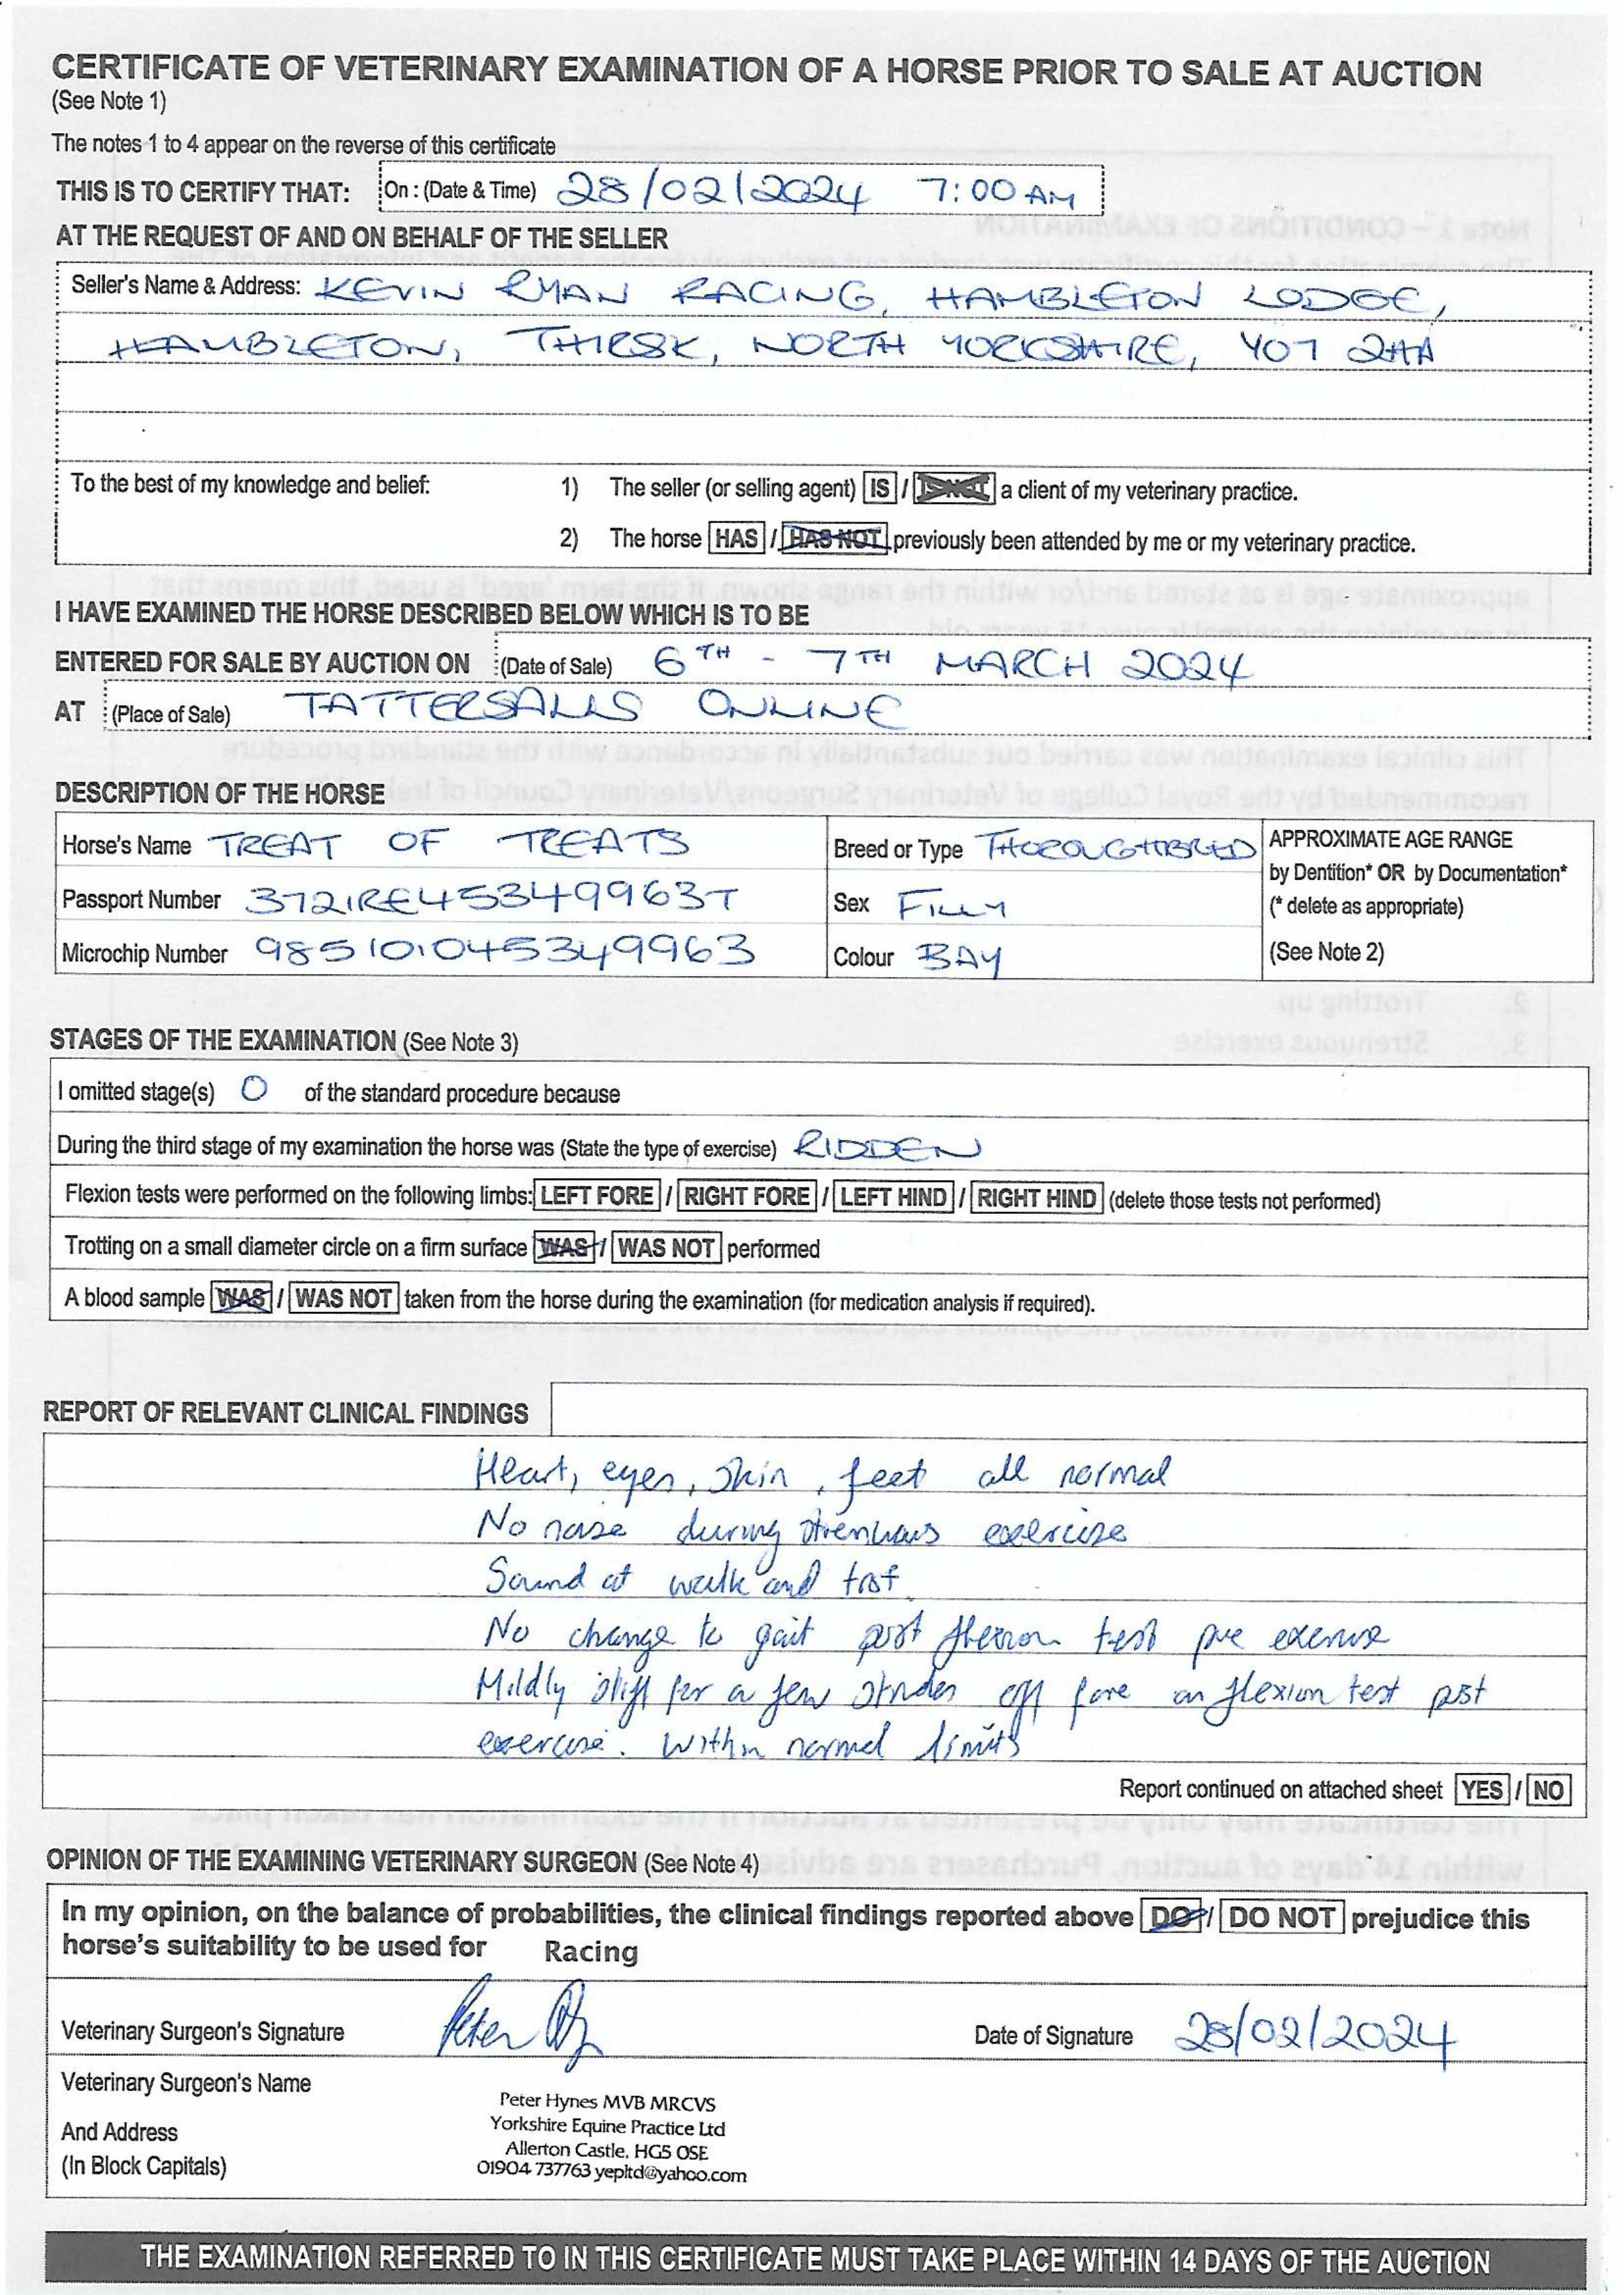 CERTIFICATE OF VETERINARY EXAMINATION OF A HORSE PRIOR TO SALE AT AUCTION
(See Note 1)
The notes 1 to 4 appear on the reverse of this certificate
THIS IS TO CERTIFY THAT: On : (Date & Time) 28/02/2024 7:00 AM
AT THE REQUEST OF AND ON BEHALF OF THE SELLER
Seller's Name & Address: KEVIN RYAN RACING, HAMBLETON LODGE,
HAMBLETON, THIRSK, NORTH YORKSHIRE, YO7 2HA
To the best of my knowledge and belief: 1) The seller (or selling agent) IS / IS NOT a client of my veterinary practice.
2) The horse HAS / HAS NOT previously been attended by me or my veterinary practice.
I HAVE EXAMINED THE HORSE DESCRIBED BELOW WHICH IS TO BE
ENTERED FOR SALE BY AUCTION ON (Date of Sale) 6TH - 7TH MARCH 2024
AT (Place of Sale) TATTERSALLS ONLINE
DESCRIPTION OF THE HORSE
Horse's Name TREAT OF TREATS Breed or Type THOROUGHBRED APPROXIMATE AGE RANGE
by Dentition* OR by Documentation*
Passport Number 372IRE45349963T Sex FILLY (* delete as appropriate)
Microchip Number 985101045349963 Colour BAY (See Note 2)
STAGES OF THE EXAMINATION (See Note 3)
I omitted stage(s) O of the standard procedure because
During the third stage of my examination the horse was (State the type of exercise) RIDDEN
Flexion tests were performed on the following limbs: LEFT FORE / RIGHT FORE / LEFT HIND / RIGHT HIND (delete those tests not performed)
Trotting on a small diameter circle on a firm surface WAS / WAS NOT performed
A blood sample WAS / WAS NOT taken from the horse during the examination (for medication analysis if required).
REPORT OF RELEVANT CLINICAL FINDINGS
Heart, eyes, skin, feet all normal
No noise during strenuous exercise
Sound at walk and trot
No change to gait post flexion test pre exercise
Mildly stiff for a few strides off fore on flexion test post
exercise. Within normal limits
Report continued on attached sheet YES / NO
OPINION OF THE EXAMINING VETERINARY SURGEON (See Note 4)
In my opinion, on the balance of probabilities, the clinical findings reported above DO / DO NOT prejudice this
horse's suitability to be used for Racing
Veterinary Surgeon's Signature Peter Date of Signature 28/02/2024
Veterinary Surgeon's Name
And Address
(In Block Capitals)
Peter Hynes MVB MRCVS
Yorkshire Equine Practice Ltd
Allerton Castle, HG5 OSE
01904 737763 yepltd@yahoo.com
THE EXAMINATION REFERRED TO IN THIS CERTIFICATE MUST TAKE PLACE WITHIN 14 DAYS OF THE AUCTION